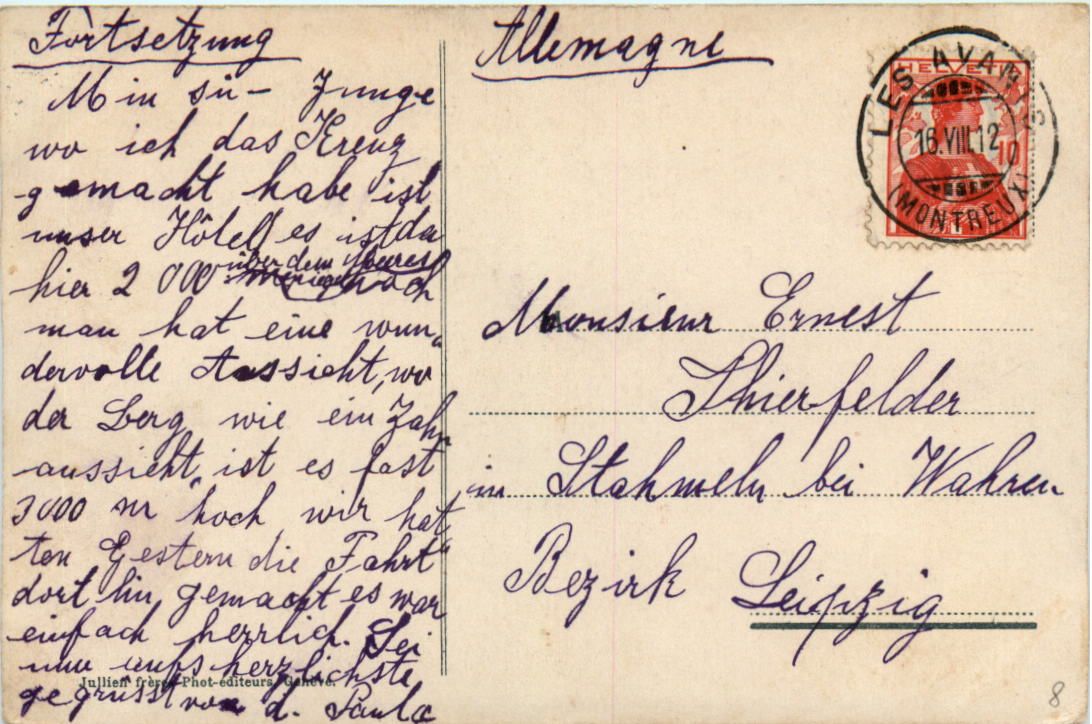 Fortsetzung
Min sü- Junge
wo ich das Kreuz
gemacht habe ist
unser Hôtel es ist da
über dem Meeres
hier 2 000 hoch
man hat eine wun„
dervolle Aussicht, wo
der Berg wie ein Zahn
aussieht, ist es fast
3000 m hoch wir hat„
ten Gestern die Fahrt
dort hin gemacht es war
einfach herrlich. Sei
nun aufs herzlichste
gegrüsst von d. Paula
Jullien frères Phot-éditeurs, Genève.
Allemagne
HELVETIA
10
LES AVANTS
16.VIII.12
(MONTREUX)
Monsieur Ernest
Thierfelder
in Stahmeln bei Wahren
Bezirk Leipzig
8